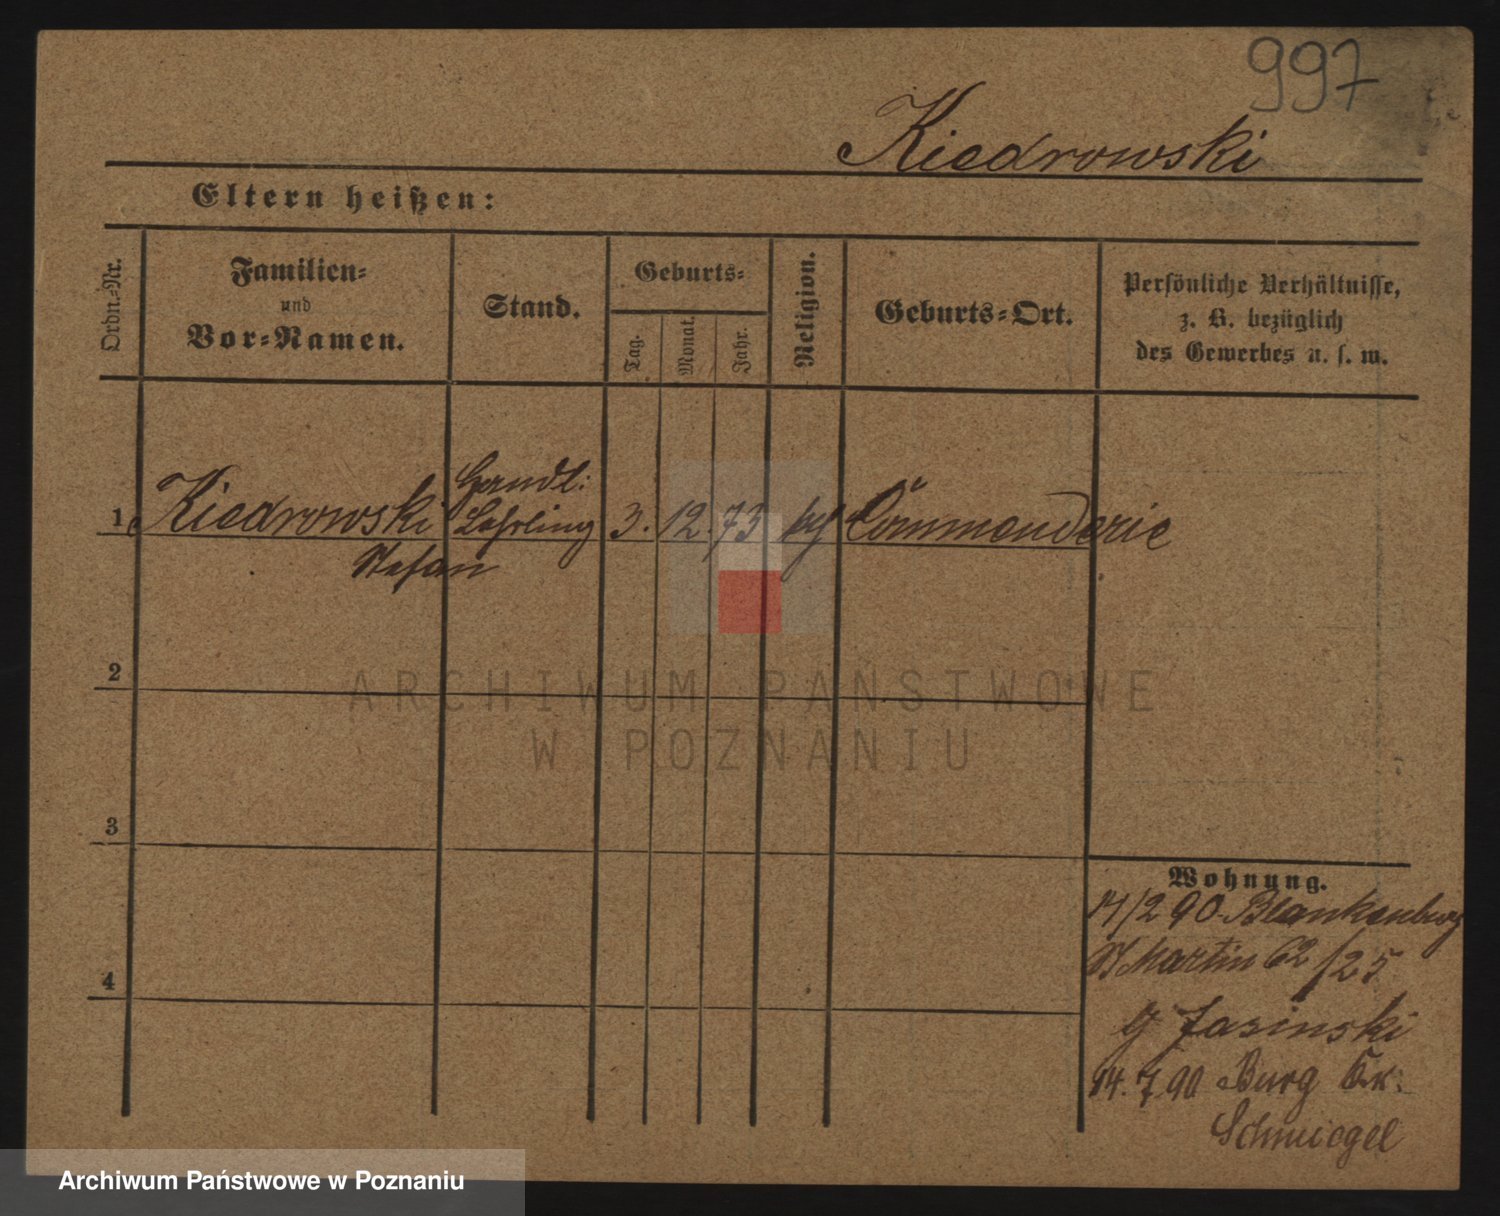 997
Kiedrowski
Eltern heißen:
Ordn.-Nr.
Familien-
und
Vor-Namen.
Stand.
Geburts-
Tag.
Monat.
Jahr.
Religion.
Geburts-Ort.
Persönliche Verhältnisse,
z. B. bezüglich
des Gewerbes u. s. w.
1 Kiedrowski Handl: Lehrling 3. 12. 73 Commenderie
Stefan
2
3
4
ARCHIWUM PAŃSTWOWE
W POZNANIU
Wohnung.
/2 90 Blankenburg
St Martin 62 /25
Jasinski
14. 7. 90 Burg Kr:
Schmiegel
Archiwum Państwowe w Poznaniu